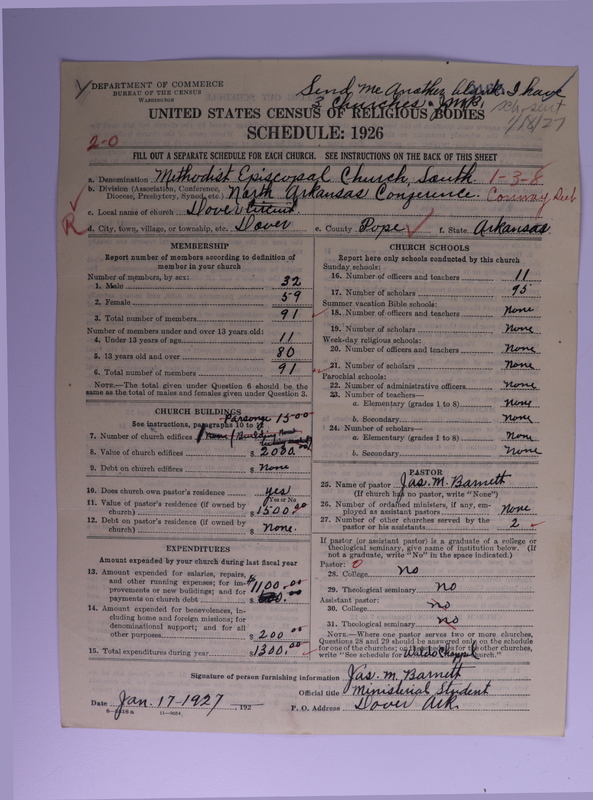 DEPARTMENT OF COMMERCE
BUREAU OF THE CENSUS
WASHINGTON
Send me Another blank I have
3 Churches. JMB.
sch. sent
1/18/27
UNITED STATES CENSUS OF RELIGIOUS BODIES
SCHEDULE: 1926
2-0
FILL OUT A SEPARATE SCHEDULE FOR EACH CHURCH. SEE INSTRUCTIONS ON THE BACK OF THIS SHEET
a. Denomination Methodist Episcopal Church, South. 1-3-8
b. Division (Association, Conference, Diocese, Presbytery, Synod, etc.) North Arkansas Conference. Conway
c. Local name of church Dover Circuit
R
d. City, town, village, or township, etc. Dover e. County Pope f. State Arkansas
MEMBERSHIP
Report number of members according to definition of member in your church
Number of members, by sex:
1. Male 32
2. Female 59
3. Total number of members 91
Number of members under and over 13 years old:
4. Under 13 years of age 11
5. 13 years old and over 80
6. Total number of members 91
NOTE.—The total given under Question 6 should be the same as the total of males and females given under Question 3.
CHURCH BUILDINGS
See instructions, paragraphs 10 to 12
Parsonage 1500
7. Number of church edifices 1 Building
8. Value of church edifices $ 2000.00
9. Debt on church edifices $ None
10. Does church own pastor's residence yes
(Yes or No)
11. Value of pastor's residence (if owned by church) $ 1500.00
12. Debt on pastor's residence (if owned by church) $ None.
EXPENDITURES
Amount expended by your church during last fiscal year
13. Amount expended for salaries, repairs, and other running expenses; for improvements or new buildings; and for payments on church debt $ 1100.00
14. Amount expended for benevolences, including home and foreign missions; for denominational support; and for all other purposes $ 200.00
15. Total expenditures during year $ 1300.00
CHURCH SCHOOLS
Report here only schools conducted by this church
Sunday schools:
16. Number of officers and teachers 11
17. Number of scholars 95
Summer vacation Bible schools:
18. Number of officers and teachers None
19. Number of scholars None
Week-day religious schools:
20. Number of officers and teachers None
21. Number of scholars None
Parochial schools:
22. Number of administrative officers None
23. Number of teachers—
a. Elementary (grades 1 to 8) None
b. Secondary None
24. Number of scholars—
a. Elementary (grades 1 to 8) None
b. Secondary None
PASTOR
25. Name of pastor Jas. M. Barnett
(If church has no pastor, write "None")
26. Number of ordained ministers, if any, employed as assistant pastors None
27. Number of other churches served by the pastor or his assistants 2
If pastor (or assistant pastor) is a graduate of a college or theological seminary, give name of institution below. (If not a graduate, write "No" in the space indicated.)
Pastor: 0
28. College No
29. Theological seminary No
Assistant pastor:
30. College No
31. Theological seminary No
NOTE.—Where one pastor serves two or more churches, Questions 28 and 29 should be answered only on the schedule for one of the churches; on the schedules for the other churches, write "See schedule for Waldo Chappel church."
Signature of person furnishing information Jas. M. Barnett
Official title Ministerial Student
Date Jan. 17-1927, 192
P. O. Address Dover Ark.
11—9034